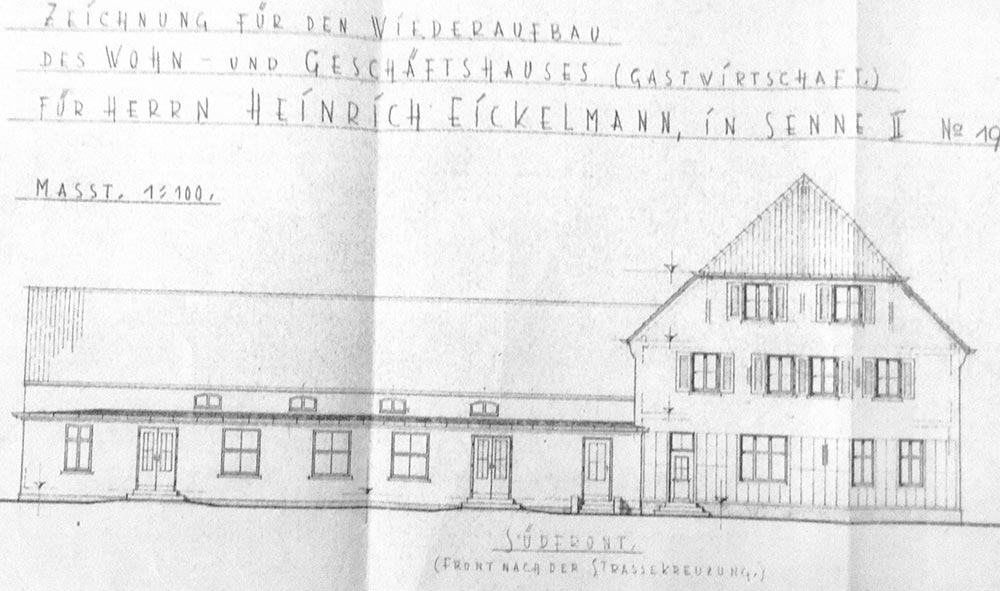 ZEICHNUNG FÜR DEN WIEDERAUFBAU
DES WOHN - UND GESCHÄFTSHAUSES (GASTWIRTSCHAFT.)
FÜR HERRN HEINRICH EICKELMANN, IN SENNE II № 19
MASST. 1:100.
SÜDFRONT.
(FRONT NACH DER STRASSEKREUZUNG.)